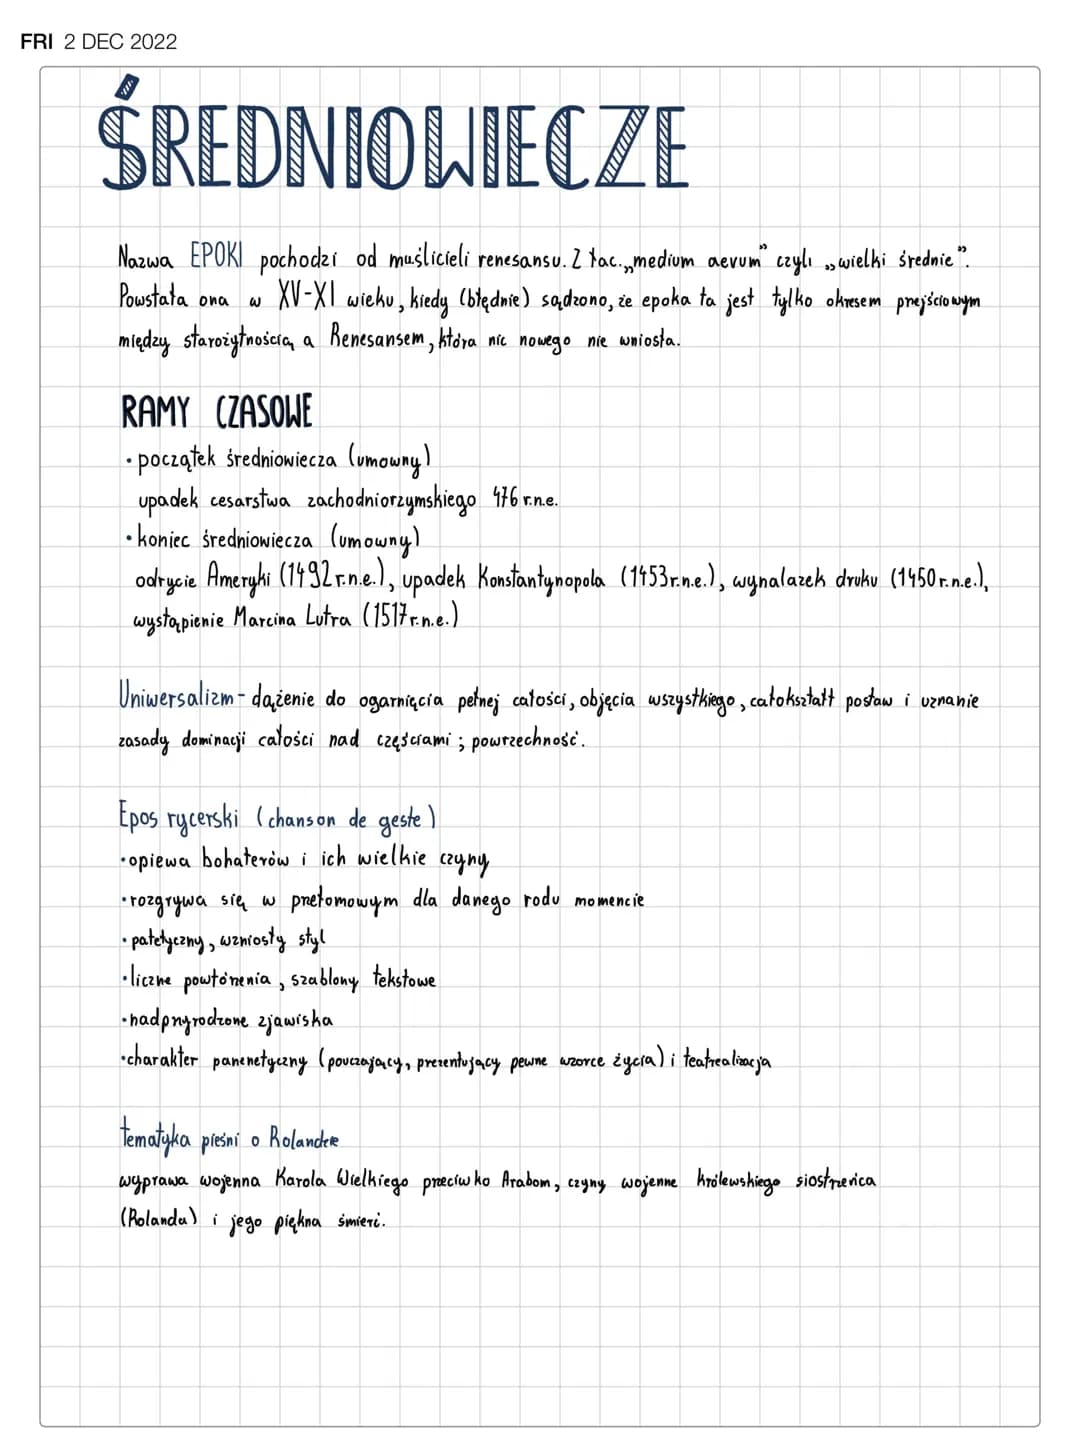 FRI 2 DEC 2022
ŚREDNIOWIECZE
Nazwa EPOKI pochodzi od muślicieli renesansu. Z łac. „medium aevum” czyli „wielki średnie”.
Powstała ona w XV-XI wieku, kiedy (błędnie) sądzono, że epoka ta jest tylko okresem prejściowym
między starożytnością a Renesansem, która nic nowego nie wniosła.
RAMY CZASOWE
• początek średniowiecza (umowny)
upadek cesarstwa zachodniorzymskiego 476 r.n.e.
• koniec średniowiecza (umowny)
odrycie Ameryki (1492 r.n.e.), upadek Konstantynopola (1453r.n.e.), wynalazek druku (1450 r.n.e.),
wystąpienie Marcina Lutra (1517 r.n.e.)
Uniwersalizm - dążenie do ogarnięcia pełnej całości, objęcia wszystkiego, całokształt postaw i uznanie
zasady dominacji całości nad częściami; powrzechność.
Epos rycerski (chanson de geste)
• opiewa bohaterów i ich wielkie czyny
• rozgrywa się w przełomowym dla danego rodu momencie
• patetyczny, wzniosły styl
• liczne powtórzenia, szablony tekstowe
• nadprzyrodzone zjawiska
• charakter parenetyczny (pouczający, prezentujący pewne wzorce życia) i teatrealizacja
tematyka pieśni o Rolandzie
wyprawa wojenna Karola Wielkiego przeciwko Arabom, czyny wojenne królewskiego siostrzeńca
(Rolanda) i jego piękna śmierć.